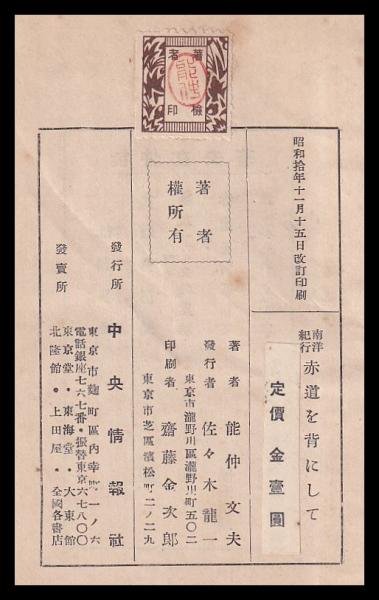 著者
檢印
昭和拾年十一月十五日改訂印刷
南洋紀行 赤道を背にして
定價 金壹圓
著者 能仲文夫
發行者 佐々木龍一
東京市瀧野川區瀧野川町五〇二
印刷者 齋藤金次郎
東京市芝區濱松町二ノ二九
著者
權所有
發行所 中央情報社
東京市麹町區內幸町一ノ六
電話銀座七六七番・振替東京六七八〇〇
發賣所
東京堂・東海堂・大東館
北隆館・上田屋・全國各書店